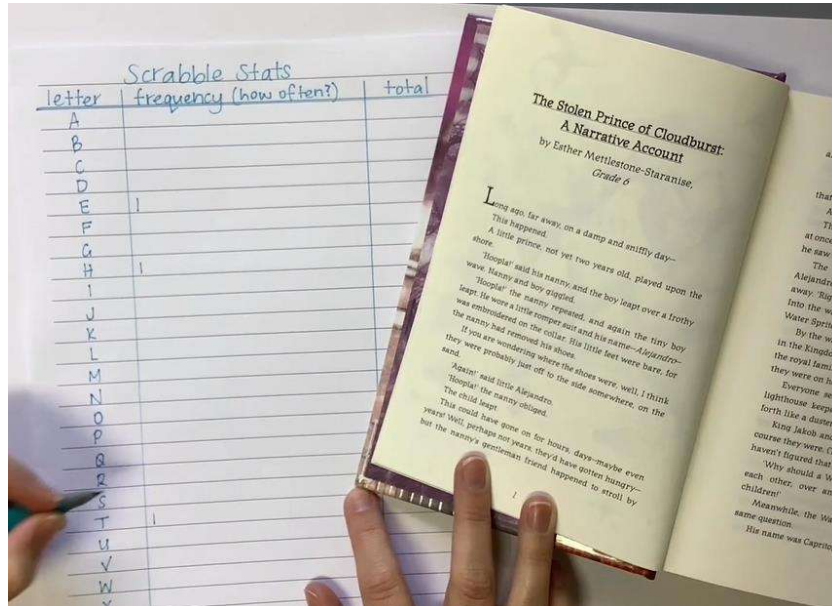 Scrabble Stats
letter frequency (how often?) total
A
B
C
D
E |
F
G
H |
I
J
K
L
M
N
O
P
Q
R
S
T |
U
V
W
The Stolen Prince of Cloudburst:
A Narrative Account
by Esther Mettlestone-Staranise,
Grade 6
Long ago, far away, on a damp and sniffly day—
This happened.
A little prince, not yet two years old, played upon the
shore.
'Hoopla!' said his nanny, and the boy leapt over a frothy
wave. Nanny and boy giggled.
'Hoopla!' the nanny repeated, and again the tiny boy
leapt. He wore a little romper suit and his name—Alejandro—
was embroidered on the collar. His little feet were bare, for
the nanny had removed his shoes.
If you are wondering where the shoes were, well, I think
they were probably just off to the side somewhere, on the
sand.
'Again!' said little Alejandro.
'Hoopla!' the nanny obliged.
The child leapt.
This could have gone on for hours, days—maybe even
years! Well, perhaps not years, they'd have gotten hungry—
but the nanny's gentleman friend happened to stroll by
1
at once
he saw
The
Alejandr
away. 'Ri
Into the w
Water Spri
By the w
in the Kingd
the royal fami
they were on h
Everyone se
lighthouse keep
forth like a duste
King Jakob an
course they were. (
haven't figured that
'Why should a W
each other, over an
children!'
Meanwhile, the Wa
same question.
His name was Caprico